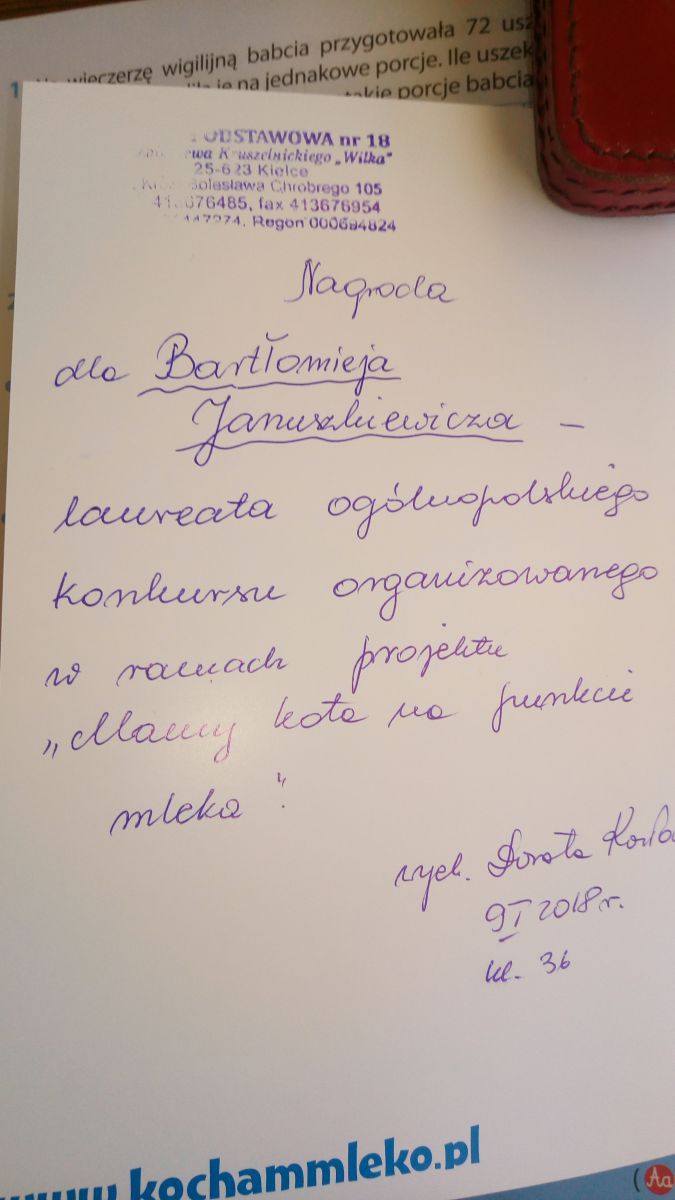 1
wieczerzę wigilijną babcia przygotowała 72
na jednakowe porcje. Ile uszek
porcje babcia
nr 18
Kruszelnickiego „Wilka"
25-623 Kielce
Bolesława Chrobrego 105
fax 413676954
Regon 000694824
Nagroda
dla Bartłomieja
Januszkiewicza –
laureata ogólnopolskiego
konkursu organizowanego
w ramach projektu
„Mamy kota na punkcie
mleka".
wych. Dorota
9 I 2018 r.
kl. 3b
kochammleko.pl
(Aa